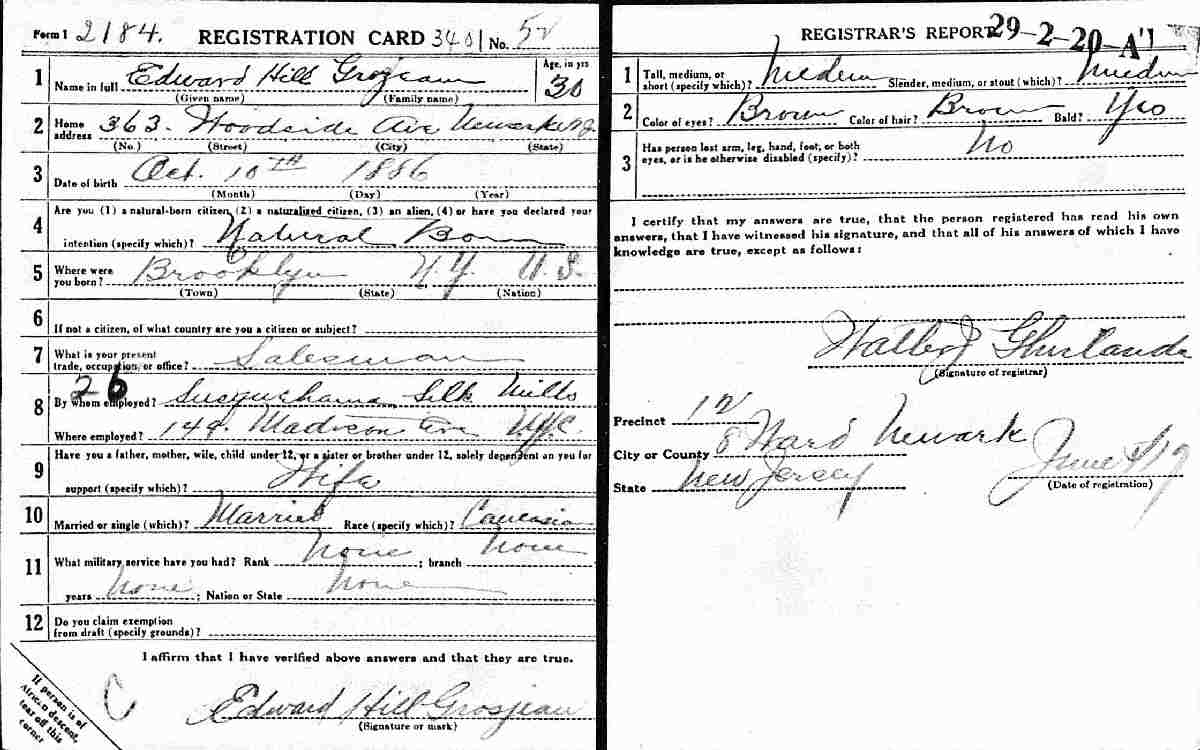 Form 1 2184. REGISTRATION CARD 3401 No. 52
1 Name in full Edward Hill Grosjean Age, in yrs 30
(Given name) (Family name)
2 Home address 363. Woodside Ave Newark NJ
(No.) (Street) (City) (State)
3 Date of birth Oct. 10TH 1886
(Month) (Day) (Year)
4 Are you (1) a natural-born citizen, (2) a naturalized citizen, (3) an alien, (4) or have you declared your
intention (specify which)? Natural Born
5 Where were you born? Brooklyn N.Y. U.S.
(Town) (State) (Nation)
6 If not a citizen, of what country are you a citizen or subject?
7 What is your present trade, occupation, or office? Salesman
26
8 By whom employed? Susquehanna Silk Mills
Where employed? 149. Madison Ave NYC.
9 Have you a father, mother, wife, child under 12, or a sister or brother under 12, solely dependent on you for
support (specify which)? Wife
10 Married or single (which)? Married Race (specify which)? Caucasian
11 What military service have you had? Rank none ; branch none
years none ; Nation or State none
12 Do you claim exemption
from draft (specify grounds)?
I affirm that I have verified above answers and that they are true.
C
Edward Hill Grosjean
(Signature or mark)
If person is of
African descent,
tear off this
corner
REGISTRAR'S REPORT 29-2-20-A
1 Tall, medium, or short (specify which)? Medium Slender, medium, or stout (which)? Medium
2 Color of eyes? Brown Color of hair? Brown Bald? Yes
3 Has person lost arm, leg, hand, foot, or both
eyes, or is he otherwise disabled (specify)? No
I certify that my answers are true, that the person registered has read his own
answers, that I have witnessed his signature, and that all of his answers of which I have
knowledge are true, except as follows:
(Signature of registrar)
Precinct 12
City or County 8 Ward Newark
State New Jersey
June
(Date of registration)